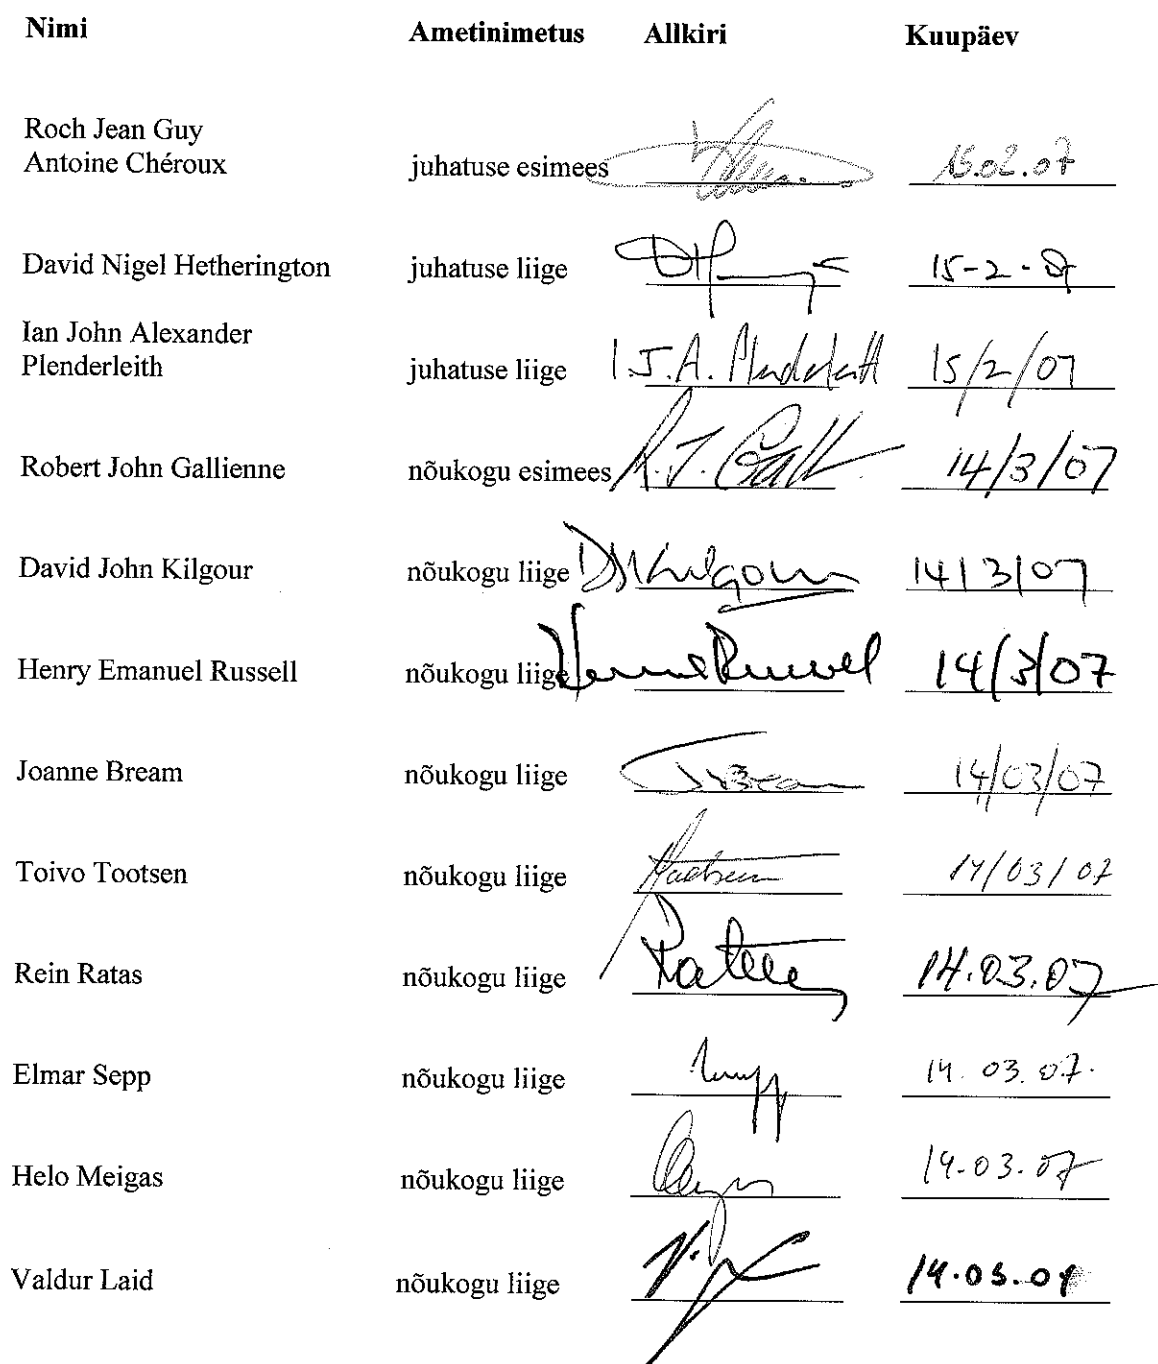 Nimi Ametinimetus Allkiri Kuupäev
Roch Jean Guy
Antoine Chéroux juhatuse esimees 15.02.07
David Nigel Hetherington juhatuse liige 15-2-07
Ian John Alexander
Plenderleith juhatuse liige I.J.A. Plenderleith 15/2/07
Robert John Gallienne nõukogu esimees R.J. 14/3/07
David John Kilgour nõukogu liige DJKilgour 14/3/07
Henry Emanuel Russell nõukogu liige 14/3/07
Joanne Bream nõukogu liige JBream 14/03/07
Toivo Tootsen nõukogu liige 14/03/07
Rein Ratas nõukogu liige 14.03.07
Elmar Sepp nõukogu liige 14.03.07.
Helo Meigas nõukogu liige 14.03.07
Valdur Laid nõukogu liige 14.03.07